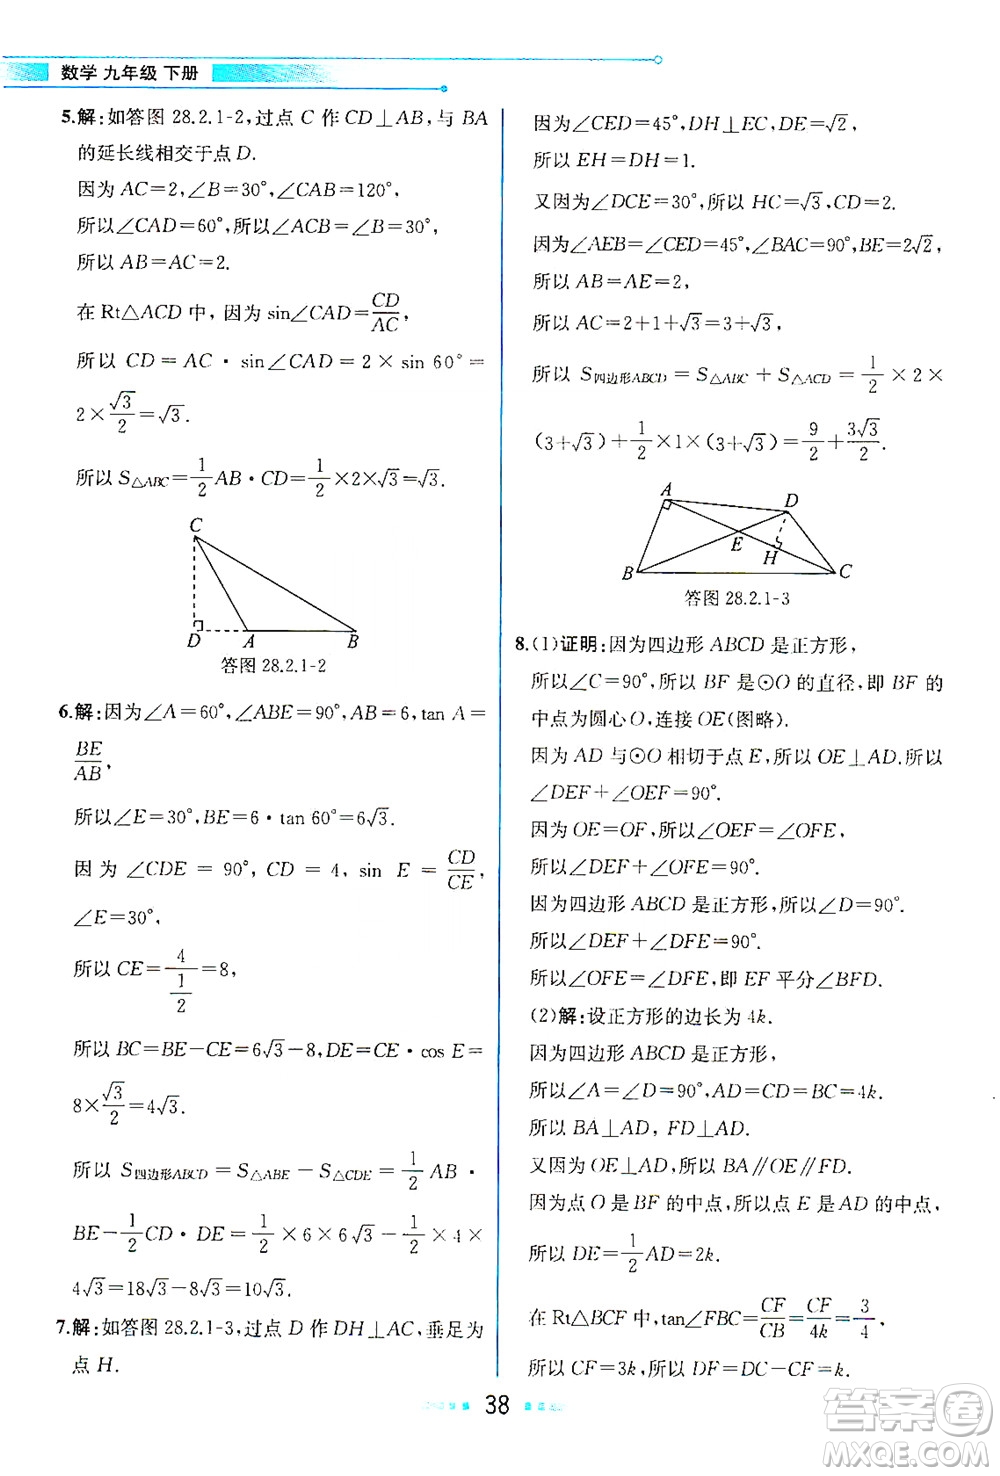 数学 九年级 下册
5.解:如答图 28.2.1-2,过点 C 作 CD⊥AB,与 BA
的延长线相交于点 D.
因为 AC=2,∠B=30°,∠CAB=120°,
所以∠CAD=60°,所以∠ACB=30°.
所以 AB=AC=2.
在 Rt△ACD 中,因为 sin∠CAD=CD/AC,
所以 CD=AC·sin∠CAD=2×sin 60°=
2×√3/2=√3.
所以 S△ABC=1/2 AB·CD=1/2×2×√3=√3.
C
D A B
答图 28.2.1-2
6.解:因为∠A=60°,∠ABE=90°,AB=6,tan A=
BE/AB,
所以∠E=30°,BE=6·tan 60°=6√3.
因为 ∠CDE = 90°, CD = 4, sin E = CD/CE,
∠E=30°,
所以 CE=4/(1/2)=8,
所以 BC=BE-CE=6√3-8,DE=CE·cos E=
8×√3/2=4√3.
所以 S四边形ABCD=S△ABE-S△CDE=1/2 AB·
BE-1/2 CD·DE=1/2×6×6√3-1/2×4×
4√3=18√3-8√3=10√3.
7.解:如答图 28.2.1-3,过点 D 作 DH⊥AC,垂足为
点 H.
因为∠CED=45°,DH⊥EC,DE=√2,
所以 EH=DH=1.
又因为∠DCE=30°,所以 HC=√3,CD=2.
因为∠AEB=∠CED=45°,∠BAC=90°,BE=2√2,
所以 AB=AE=2,
所以 AC=2+1+√3=3+√3,
所以 S四边形ABCD=S△ABC+S△ACD=1/2×2×
(3+√3)+1/2×1×(3+√3)=9/2+3√3/2.
A D
E H
B C
答图 28.2.1-3
8.(1)证明:因为四边形 ABCD 是正方形,
所以∠C=90°,所以 BF 是⊙O 的直径,即 BF 的
中点为圆心 O,连接 OE(图略).
因为 AD 与⊙O 相切于点 E,所以 OE⊥AD.所以
∠DEF+∠OEF=90°.
因为 OE=OF,所以∠OEF=∠OFE,
所以∠DEF+∠OFE=90°.
因为四边形 ABCD 是正方形,所以∠D=90°.
所以∠DEF+∠DFE=90°.
所以∠OFE=∠DFE,即 EF 平分∠BFD.
(2)解:设正方形的边长为 4k.
因为四边形 ABCD 是正方形,
所以∠A=∠D=90°,AD=CD=BC=4k.
所以 BA⊥AD, FD⊥AD.
又因为 OE⊥AD,所以 BA∥OE∥FD.
因为点 O 是 BF 的中点,所以点 E 是 AD 的中点,
所以 DE=1/2 AD=2k.
在 Rt△BCF 中,tan∠FBC=CF/CB=CF/4k=3/4,
所以 CF=3k,所以 DF=DC-CF=k.
38
答案圈
MXQE.COM